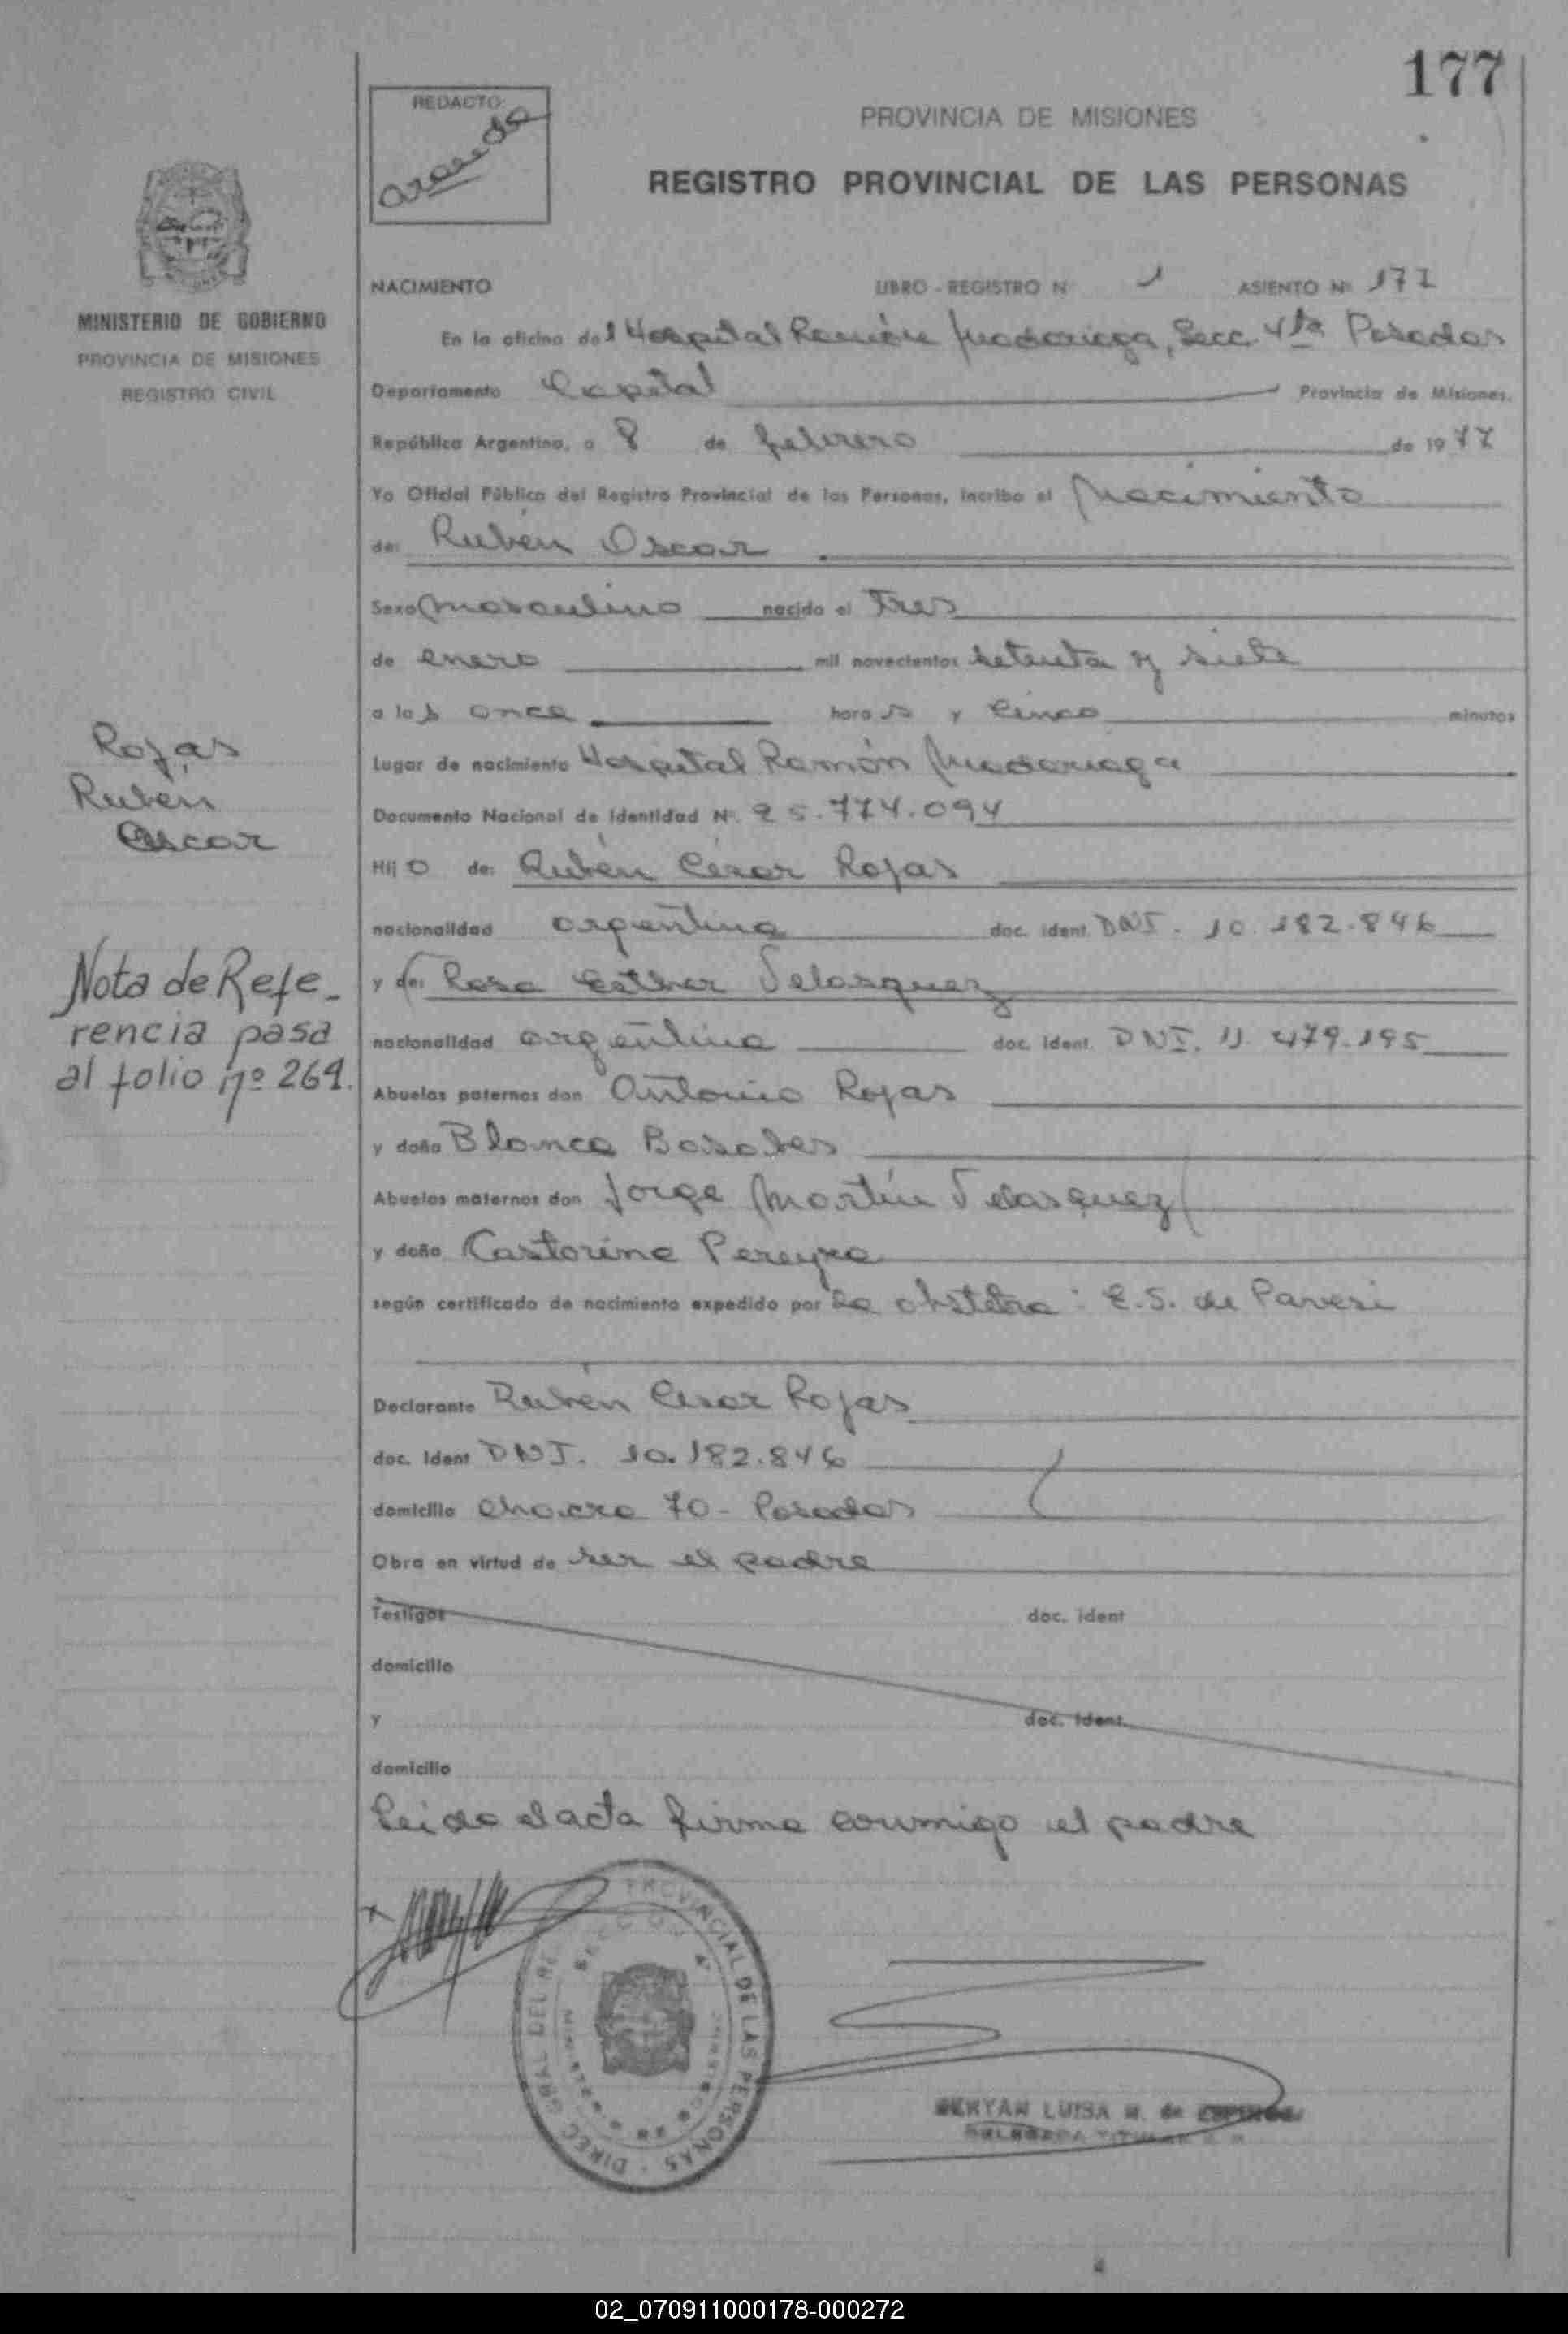 177
REDACTO:
Aranda
PROVINCIA DE MISIONES
REGISTRO PROVINCIAL DE LAS PERSONAS
MINISTERIO DE GOBIERNO
PROVINCIA DE MISIONES
REGISTRO CIVIL
NACIMIENTO LIBRO - REGISTRO Nº 1 ASIENTO Nº 177
En la oficina del Hospital Ramón Madariaga, Secc. 4ta Posadas
Departamento Capital Provincia de Misiones.
República Argentina, a 8 de febrero de 1977
Yo Oficial Público del Registro Provincial de las Personas, incribo el Nacimiento
de: Rubén Oscar
Sexo Masculino nacido el Tres
de enero mil novecientos setenta y siete
a las once horas y cinco minutos
Lugar de nacimiento Hospital Ramón Madariaga
Documento Nacional de Identidad Nº. 25.774.094
Hijo de: Rubén César Rojas
nacionalidad argentina doc. ident. DNI. 10.182.846
y de: Rosa Esther Velasquez
nacionalidad argentina doc. ident. DNI. 11.479.195
Abuelos paternos don Antonio Rojas
y doña Blanca Basabes
Abuelos maternos don Jorge Martín Velasquez
y doña Castorina Pereyra
según certificado de nacimiento expedido por la obstetra: E.S. de Pavesi
Declarante Rubén Cesar Rojas
doc. ident DNI. 10.182.846
domicilio Chacra 70 - Posadas
Obra en virtud de ser el padre
Testigos doc. ident
domicilio
y doc. ident.
domicilio
Leida el acta firma conmigo el padre
Rojas
Rubén
Oscar
Nota de Refe-
rencia pasa
al folio nº 269.
DIREC. GRAL DEL RE PROVINCIAL DE LAS PERSONAS
LUISA M. de
DELEGADA TITULAR
02_070911000178-000272